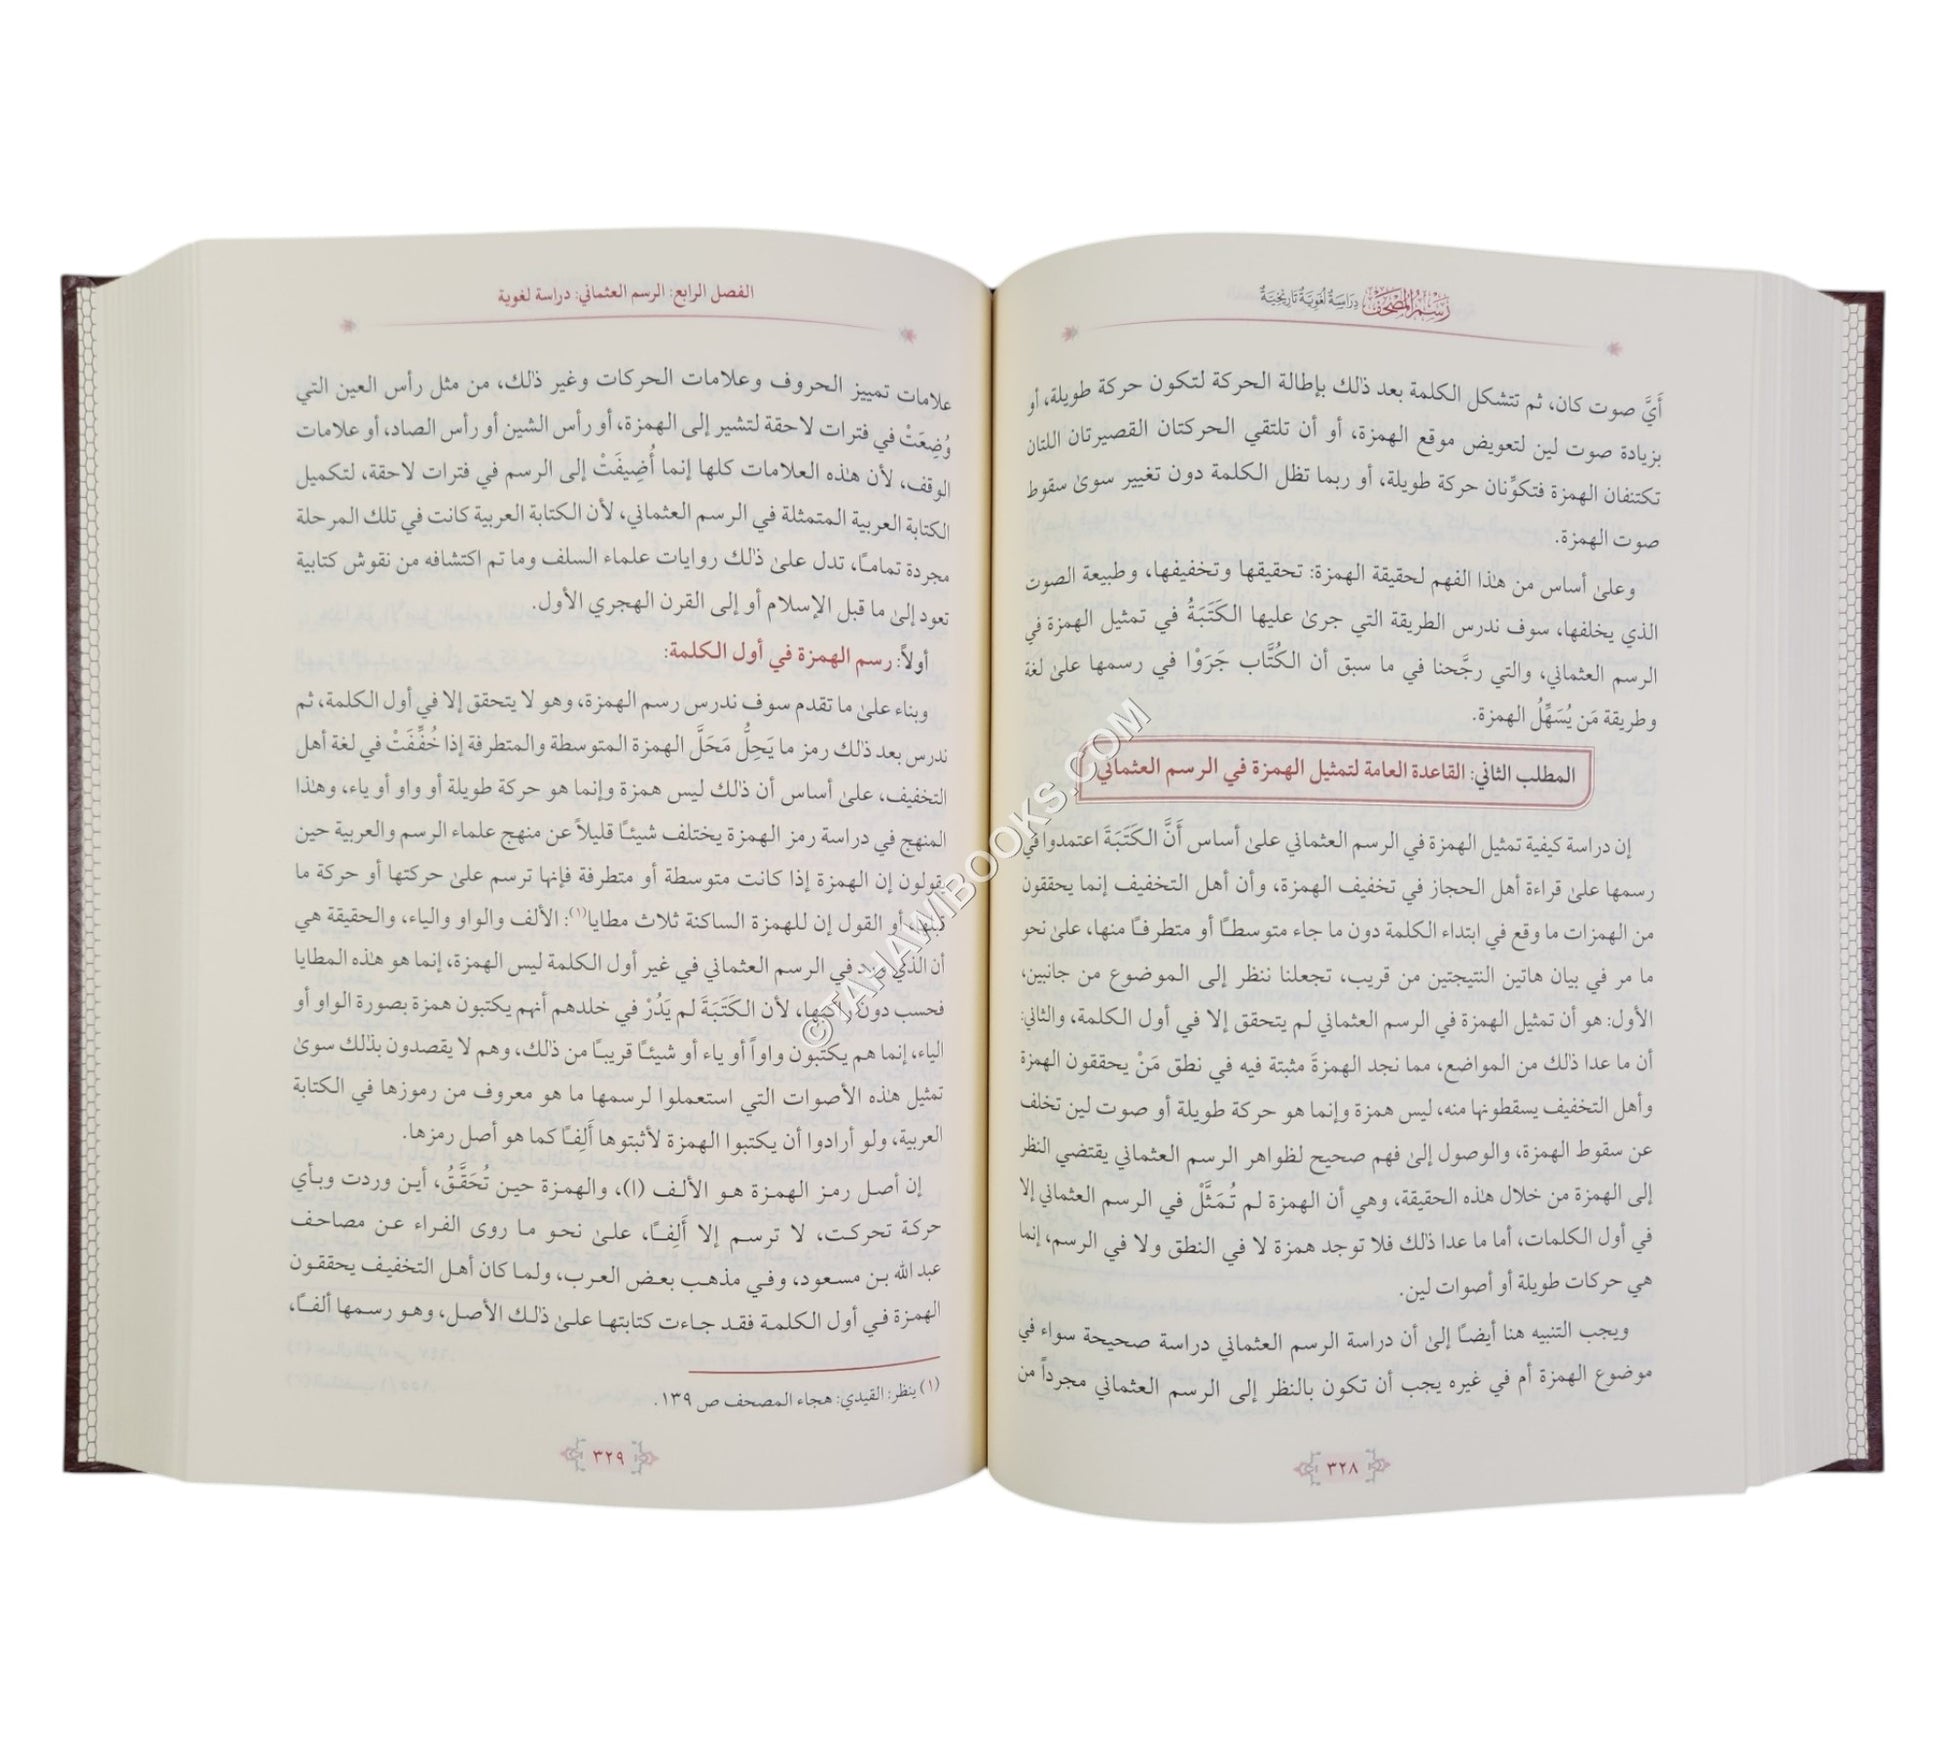 رسم المصحف دراسة لغوية تاريخية
أَيَّ صوت كان، ثم تتشكل الكلمة بعد ذٰلك بإطالة الحركة لتكون حركة طويلة، أو
بزيادة صوت لين لتعويض موقع الهمزة، أو أن تلتقي الحركتان القصيرتان اللتان
تكتنفان الهمزة فتكوِّنان حركة طويلة، أو ربما تظل الكلمة دون تغيير سوىٰ سقوط
صوت الهمزة.
وعلىٰ أساس من هٰذا الفهم لحقيقة الهمزة: تحقيقها وتخفيفها، وطبيعة الصوت
الذي يخلفها، سوف ندرس الطريقة التي جرىٰ عليها الكَتَبَةُ في تمثيل الهمزة في
الرسم العثماني، والتي رجَّحنا في ما سبق أن الكُتَّاب جَرَوْا في رسمها علىٰ لغة
وطريقة مَن يُسَهِّلُ الهمزة.
المطلب الثاني: القاعدة العامة لتمثيل الهمزة في الرسم العثماني
إن دراسة كيفية تمثيل الهمزة في الرسم العثماني علىٰ أساس أَنَّ الكَتَبَةَ اعتمدوا في
رسمها علىٰ قراءة أهل الحجاز في تخفيف الهمزة، وأن أهل التخفيف إنما يحققون
من الهمزات ما وقع في ابتداء الكلمة دون ما جاء متوسطـًا أو متطرفـًا منها، علىٰ نحو
ما مر في بيان هاتين النتيجتين من قريب، تجعلنا ننظر إلى الموضوع من جانبين،
الأول: هو أن تمثيل الهمزة في الرسم العثماني لم يتحقق إلا في أول الكلمة، والثاني:
أن ما عدا ذٰلك من المواضع، مما نجد الهمزةَ مثبتة فيه في نطق مَنْ يحققون الهمزة
وأهل التخفيف يسقطونها منه، ليس همزة وإنما هو حركة طويلة أو صوت لين تخلف
عن سقوط الهمزة، والوصول إلىٰ فهم صحيح لظواهر الرسم العثماني يقتضي النظر
إلى الهمزة من خلال هٰذه الحقيقة، وهي أن الهمزة لم تُمَثَّلْ في الرسم العثماني إلا
في أول الكلمات، أما ما عدا ذٰلك فلا توجد همزة لا في النطق ولا في الرسم، إنما
هي حركات طويلة أو أصوات لين.
ويجب التنبيه هنا أيضـًا إلىٰ أن دراسة الرسم العثماني دراسة صحيحة سواء في
موضوع الهمزة أم في غيره يجب أن تكون بالنظر إلى الرسم العثماني مجرداً من
٣٢٨
الفصل الرابع: الرسم العثماني: دراسة لغوية
علامات تمييز الحروف وعلامات الحركات وغير ذٰلك، من مثل رأس العين التي
وُضِعَتْ في فترات لاحقة لتشير إلى الهمزة، أو رأس الشين أو رأس الصاد، أو علامات
الوقف، لأن هٰذه العلامات كلها إنما أُضِيفَتْ إلى الرسم في فترات لاحقة، لتكميل
الكتابة العربية المتمثلة في الرسم العثماني، لأن الكتابة العربية كانت في تلك المرحلة
مجردة تمامـًا، تدل علىٰ ذٰلك روايات علماء السلف وما تم اكتشافه من نقوش كتابية
تعود إلىٰ ما قبل الإسلام أو إلى القرن الهجري الأول.
أولاً: رسم الهمزة في أول الكلمة:
وبناء علىٰ ما تقدم سوف ندرس رسم الهمزة، وهو لا يتحقق إلا في أول الكلمة، ثم
ندرس بعد ذٰلك رمز ما يَحِلُّ مَحَلَّ الهمزة المتوسطة والمتطرفة إذا خُفِّفَتْ في لغة أهل
التخفيف، علىٰ أساس أن ذٰلك ليس همزة وإنما هو حركة طويلة أو واو أو ياء، وهٰذا
المنهج في دراسة رمز الهمزة يختلف شيئـًا قليلاً عن منهج علماء الرسم والعربية حين
يقولون إن الهمزة إذا كانت متوسطة أو متطرفة فإنها ترسم علىٰ حركتها أو حركة ما
قبلها، أو القول إن للهمزة الساكنة ثلاث مطايا(١): الألف والواو والياء، والحقيقة هي
أن الذي ورد في الرسم العثماني في غير أول الكلمة ليس الهمزة، إنما هو هٰذه المطايا
فحسب دون راكبها، لأن الكَتَبَةَ لم يَدُرْ في خلدهم أنهم يكتبون همزة بصورة الواو أو
الياء، إنما هم يكتبون واواً أو ياء أو شيئـًا قريبـًا من ذٰلك، وهم لا يقصدون بذٰلك سوىٰ
تمثيل هٰذه الأصوات التي استعملوا لرسمها ما هو معروف من رموزها في الكتابة
العربية، ولو أرادوا أن يكتبوا الهمزة لأثبتوها أَلِفـًا كما هو أصل رمزها.
إن أصل رمز الهمزة هو الألف (ا)، والهمزة حين تُحَقَّقُ، أين وردت وبأي
حركة تحركت، لا ترسم إلا أَلِفـًا، علىٰ نحو ما روى الفراء عن مصاحف
عبد الله بن مسعود، وفي مذهب بعض العرب، ولما كان أهل التخفيف يحققون
الهمزة في أول الكلمة فقد جاءت كتابتها علىٰ ذٰلك الأصل، وهو رسمها ألفـًا،
(١) ينظر: القيدي: هجاء المصحف ص ١٣٩.
٣٢٩
©TAHAWIBOOKS.COM